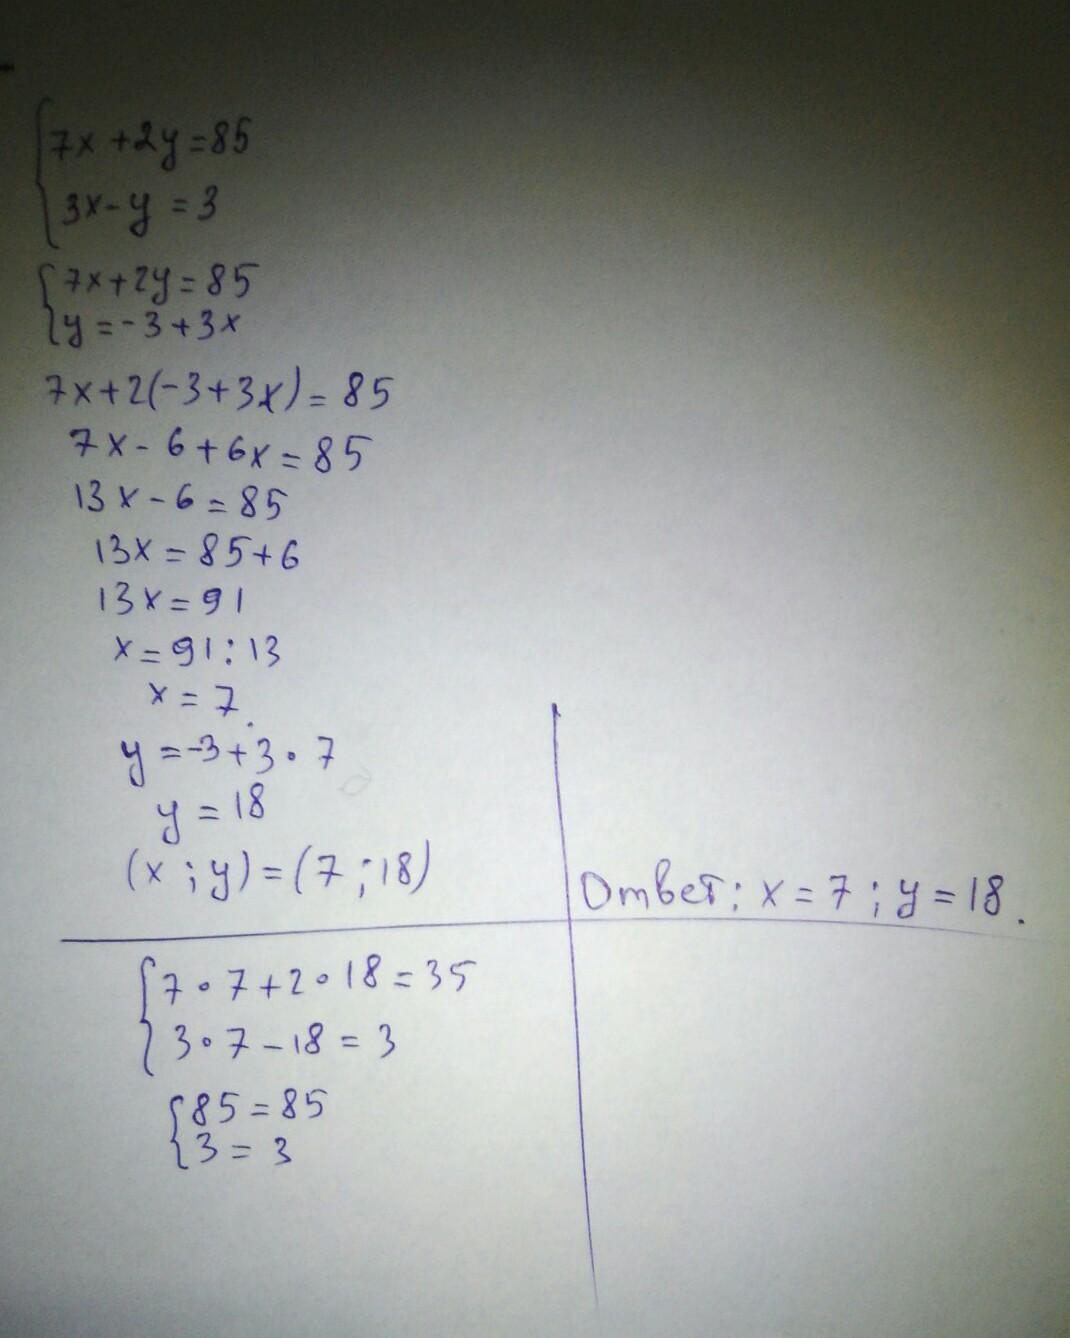 7x+2y=85
3x-y=3
7x+2y=85
y=-3+3x
7x+2(-3+3x)=85
7x-6+6x=85
13x-6=85
13x=85+6
13x=91
x=91:13
x=7.
y=-3+3·7
y=18
(x;y)=(7;18)
Ответ: x=7; y=18.
7·7+2·18=35
3·7-18=3
85=85
3=3